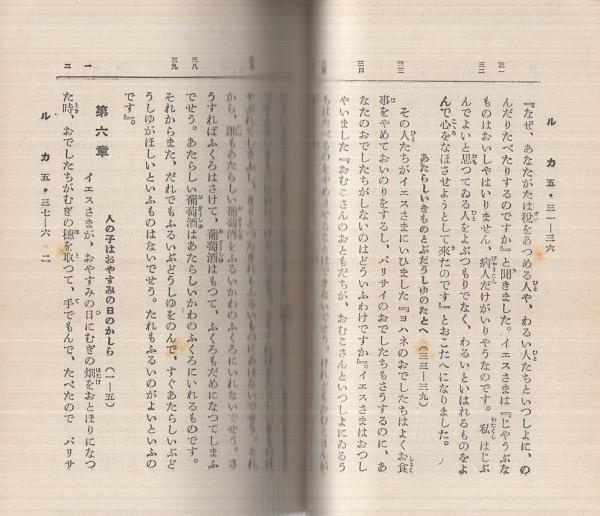 ルカ 五・三一―三六
三一
三二
三三
三四
『なぜ、あなたがたは税をあつめる人や、わるい人たちといつしよに、の
んだりたべたりするのですか』と聞きました。イエスさまは『じやうぶな
ものはおいしやはいりません、病人だけがいりやうなのです。私はじぶ
んでよいと思つてゐる人をよぶつもりでなく、わるいといはれるものをよ
んで心をなほさせようとして來たのです』とおこたへになりました。
あたらしいきものとぶだうしゆのたとへ(三三―三九)
その人たちがイエスさまにいひました『ヨハネのおでしたちはよくお食
事をやめておいのりをするし、パリサイのおでしたちもさうするのに、あ
なたのおでしたちがしないのはどういふわけですか』。イエスさまはおつし
やいました『おむこさんのおともだちが、おむこさんといつしよにゐるう
三八
三九
から、誰もあたらしい葡萄酒をふるいかわのふくろにいれないでせう。さ
うすればふくろはさけて、葡萄酒はもつて、ふくろもだめになつてしまふ
でせう。あたらしい葡萄酒はあたらしいかわのふくろにいれるものです。
それからまた、だれでもふるいぶどうしゆをのんで、すぐあたらしいぶど
うしゆがほしいといふものはないでせう。たれもふるいのがよいといふの
です』。
第六章
人の子はおやすみの日のかしら(一―五)
一
二
イエスさまが、おやすみの日にむぎの畑をおとほりになつ
た時、おでしたちがむぎの穗を取つて、手でもんで、たべたので パリサ
ルカ 五・三七―六・二